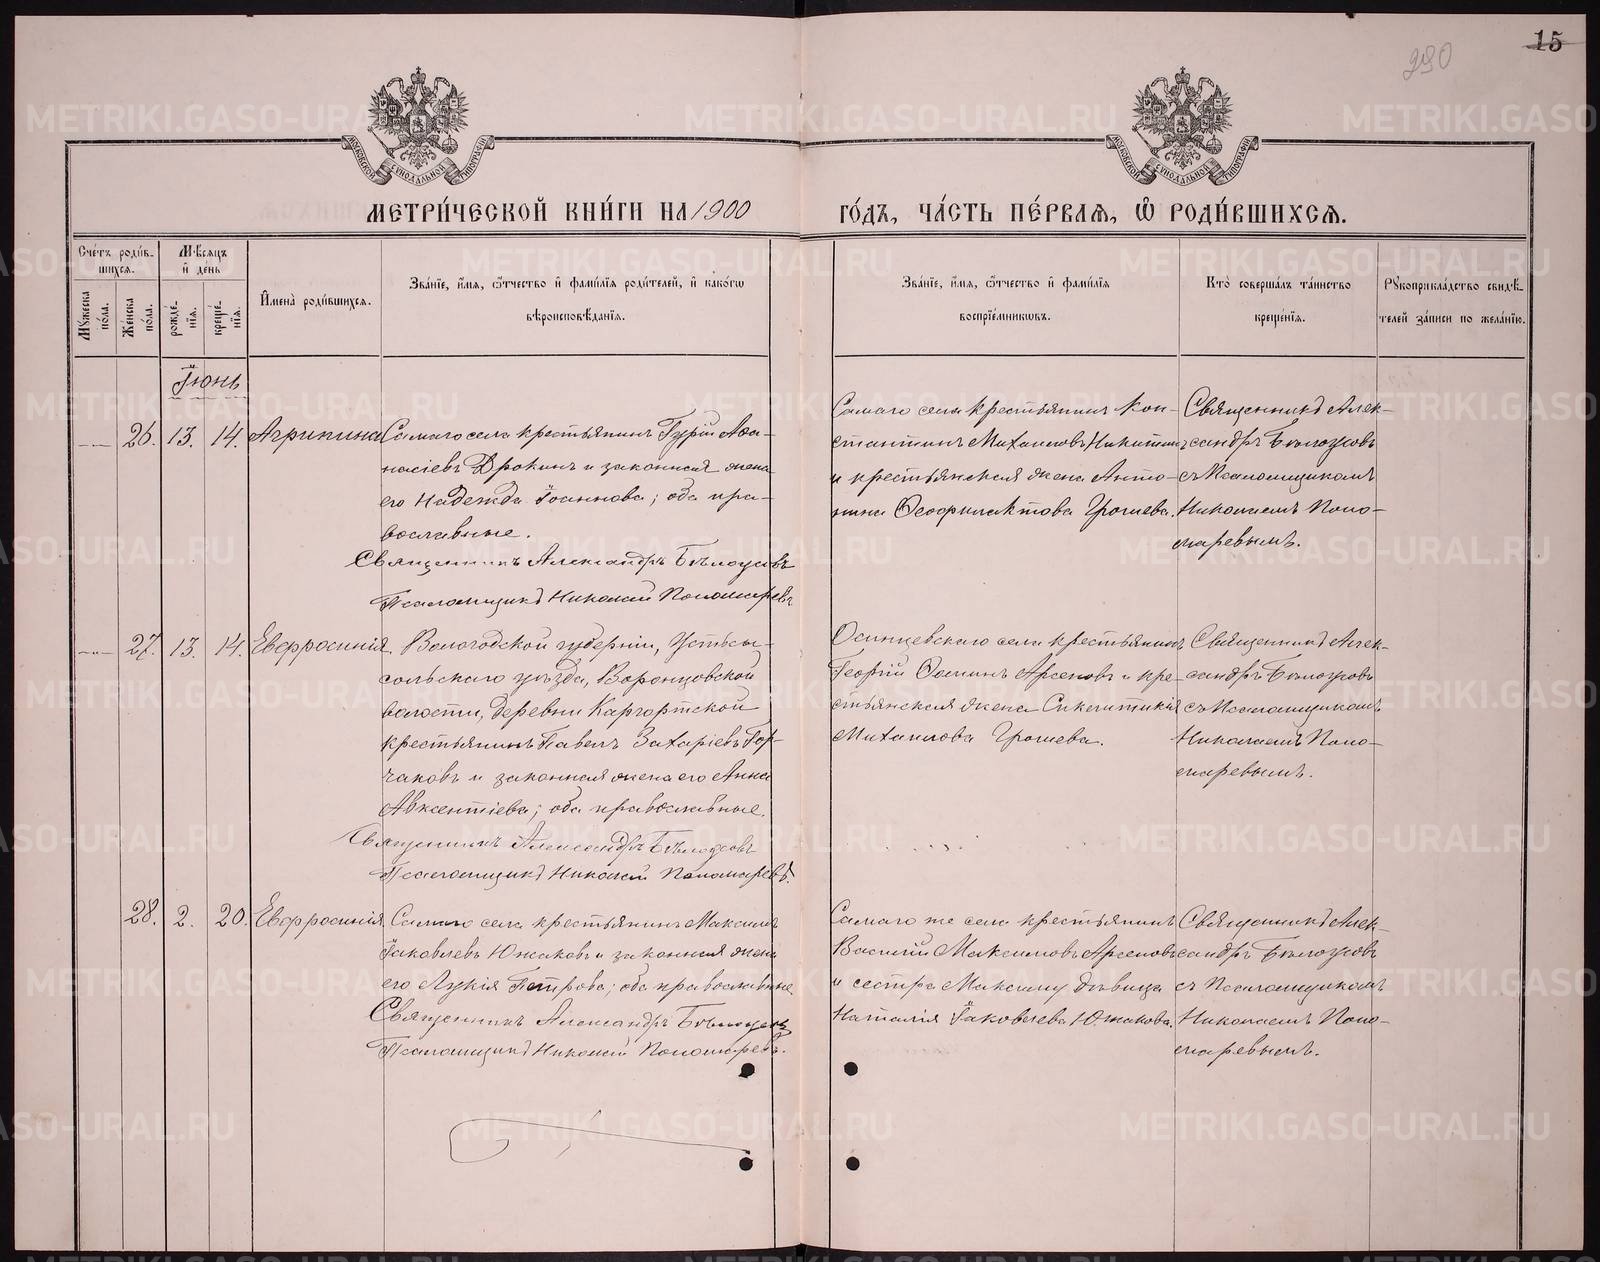 290
15
МОСКОВСКОЙ СѴНОДАЛЬНОЙ ТИПОГРАФІИ
МОСКОВСКОЙ СѴНОДАЛЬНОЙ ТИПОГРАФІИ
МЕТРИ́ЧЕСКОЙ КНИ́ГИ НА 1900
ГО́ДЪ, ЧА́СТЬ ПЕ́РВАЯ, Ѿ РОДИ́ВШИХСЯ.
Сче́тъ роди́в-
шихся.
Мѣ́сяцъ
и҆ де́нь
Мꙋ́жеска
по́ла.
Же́нска
по́ла.
рожде́-
нїя.
креще́-
нїя.
И҆мена̀ роди́вшихся.
Зва́нїе, и҆́мя, ѻ҆́тчество и҆ фами́лїя роди́телей, и҆ како́гѡ
вѣроисповѣ́данїя.
Зва́нїе, и҆́мя, ѻ҆́тчество и҆ фами́лїя
воспрїе́мникѡвъ.
Кто̀ соверша́лъ та́инство
креще́нїя.
Рꙋкоприкла́дство свидѣ́-
телей за́писи по жела́нїю.
Іюнь
26. 13. 14. Агрипина
Самаго села крестьянинъ Гурій Афа-
насіевъ Дрокинъ и законная жена
его Надежда Іоаннова; оба пра-
вославные.
Священникъ Александръ Бѣлоусовъ
Псаломщикъ Николай Пономаревъ
Самаго села крестьянинъ Кон-
стантинъ Михаиловъ Никитинъ
и крестьянская жена Анто-
нина Феофилактова Грошева.
Священникъ Алек-
сандръ Бѣлоусовъ
съ Псаломщикомъ
Николаемъ Поно-
маревымъ.
27. 13. 14. Евфросинія.
Вологодской губерніи, Устьсы-
сольскаго уѣзда, Воронцовской
волости, деревни Каргортской
крестьянинъ Павелъ Захаріевъ Гор-
чаковъ и законная жена его Анна
Авксентіева; оба православные.
Священникъ Александръ Бѣлоусовъ
Псаломщикъ Николай Пономаревъ.
Осинцевскаго села крестьянинъ
Георгій Фоминъ Арсеновъ и кре-
стьянская жена Синклитикія
Михаилова Грошева.
Священникъ Алек-
сандръ Бѣлоусовъ
съ Псаломщикомъ
Николаемъ Поно-
маревымъ.
28. 2. 20. Евфросинія.
Самаго села крестьянинъ Максимъ
Іаковлевъ Южаковъ и законная жена
его Лукія Петрова; оба православные.
Священникъ Александръ Бѣлоусовъ
Псаломщикъ Николай Пономаревъ.
Самаго же села крестьянинъ
Василій Максимовъ Арсеновъ
и сестра Максиму дѣвица
Наталія Іаковлева Южакова.
Священникъ Алек-
сандръ Бѣлоусовъ
съ Псаломщикомъ
Николаемъ Поно-
маревымъ.
METRIKI.GASO-URAL.RU